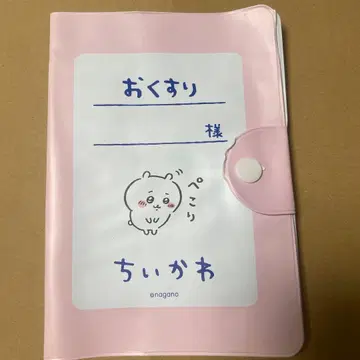 おくすり
様
ぺこり
ちいかわ
©nagano